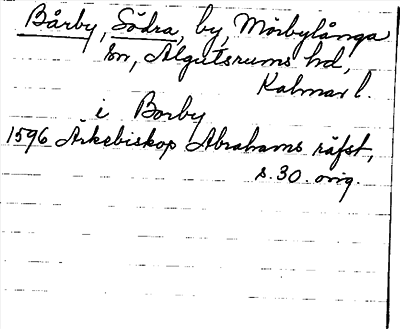 Bårby, Södra, by, Mörbylånga
sn, Algutsrums hd,
Kalmar l.
i Borby
1596 Ärkebiskop Abrahams räfst,
s. 30. orig.